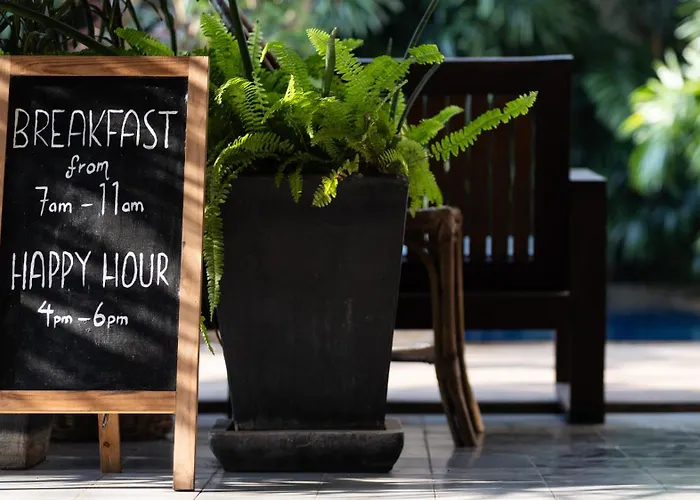 BREAKFAST
from
7am - 11am
HAPPY HOUR
4pm - 6pm